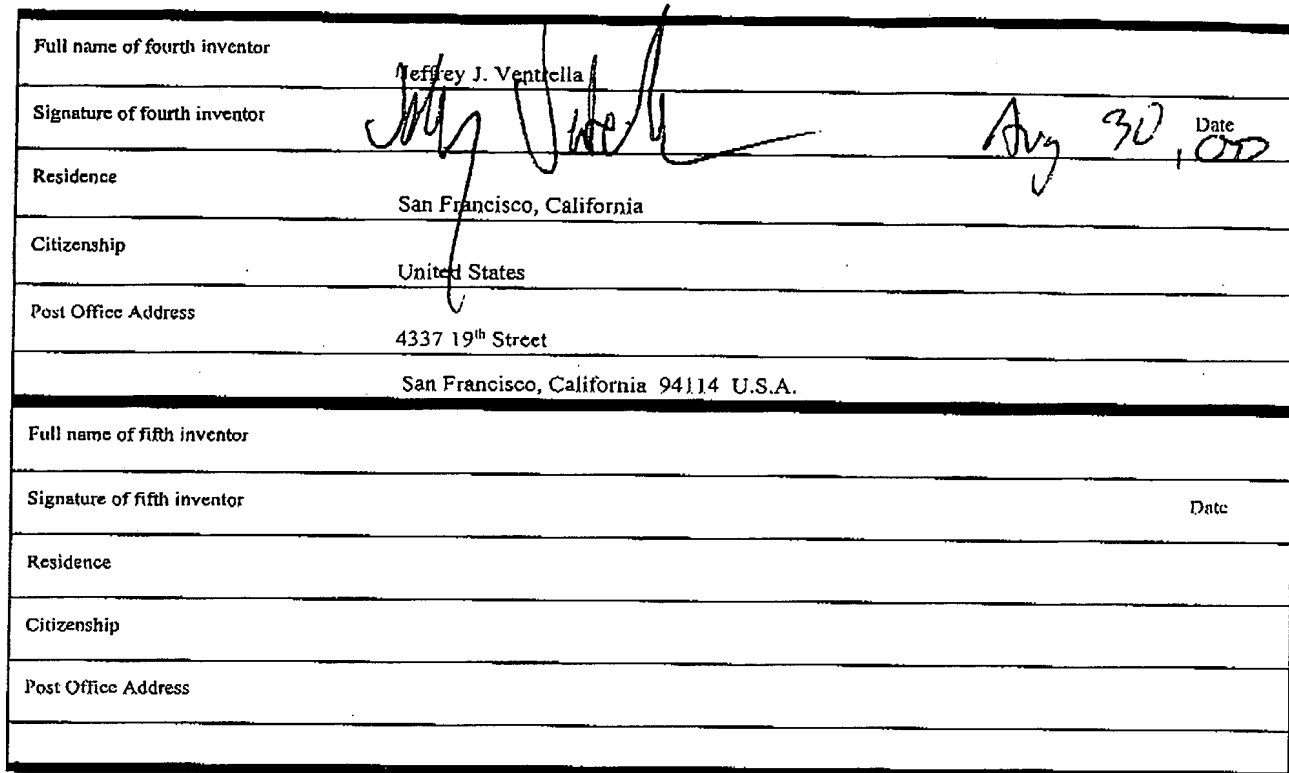 Full name of fourth inventor
Jeffrey J. Ventrella
Signature of fourth inventor
Aug 30, 00
Date
Residence
San Francisco, California
Citizenship
United States
Post Office Address
4337 19th Street
San Francisco, California 94114 U.S.A.
Full name of fifth inventor
Signature of fifth inventor
Date
Residence
Citizenship
Post Office Address